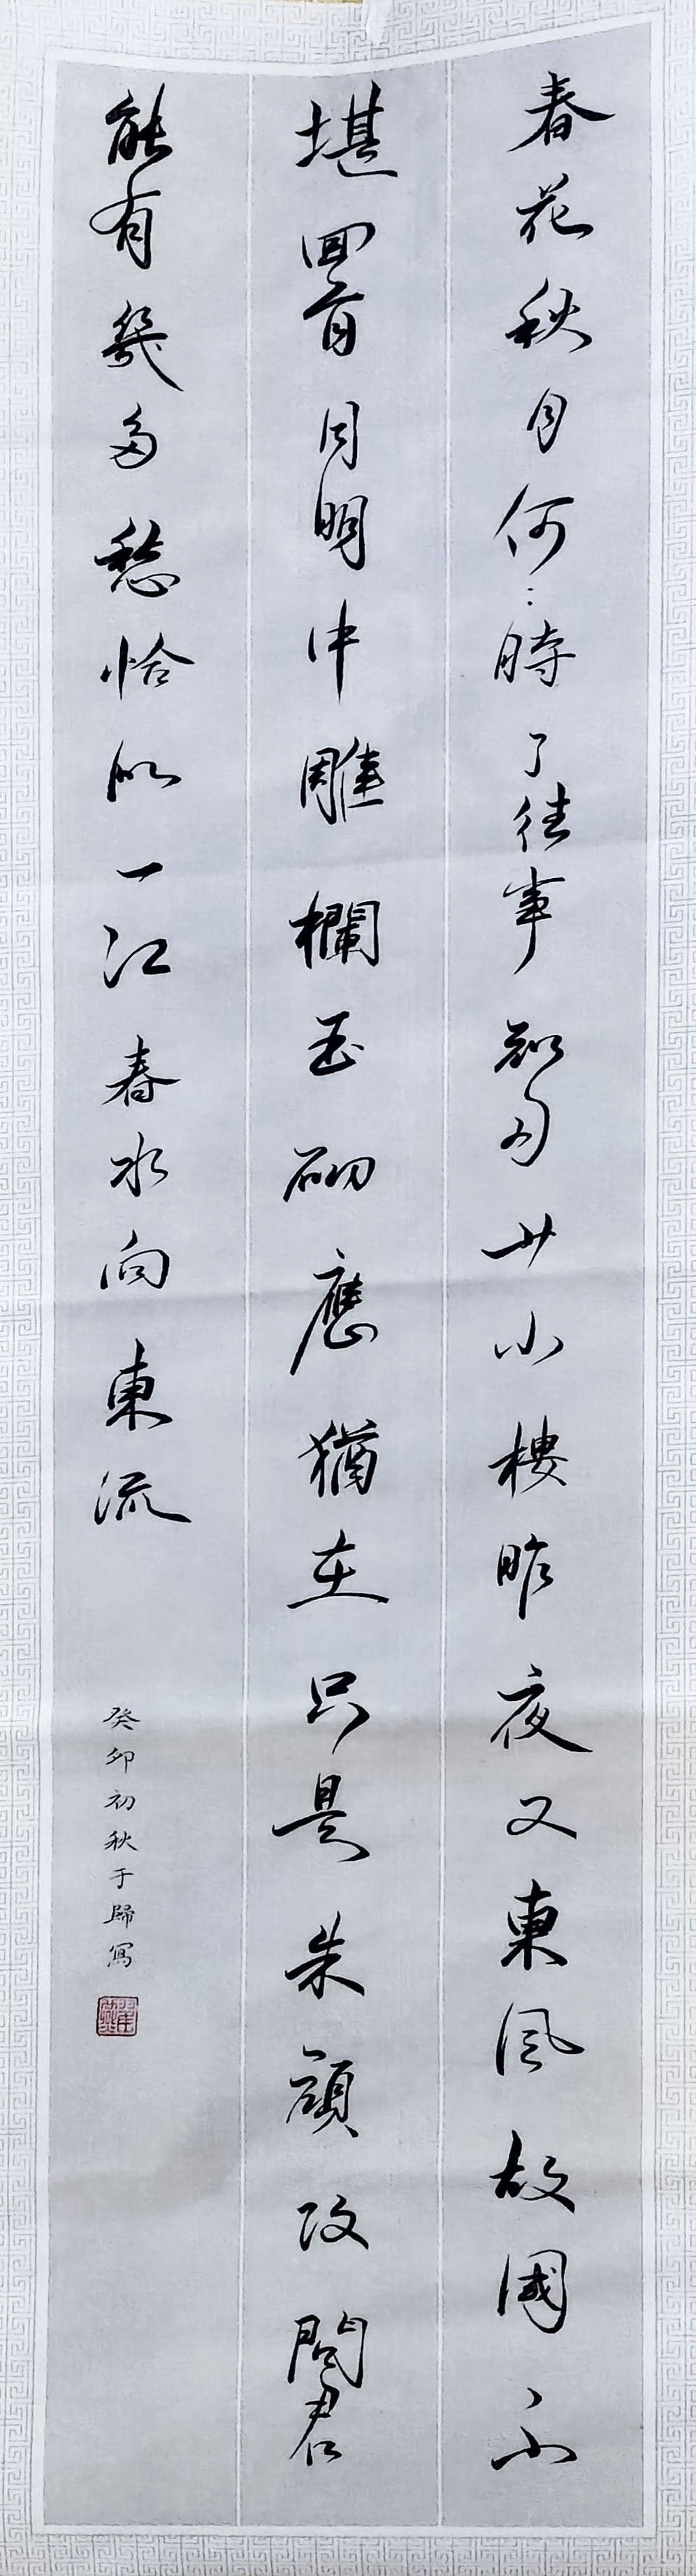 春花秋月何：時了往事知多少小樓昨夜又東風故國不
堪回首月明中雕欄玉砌應猶在只是朱顔改問君
能有幾多愁恰似一江春水向東流
癸卯初秋于歸寫